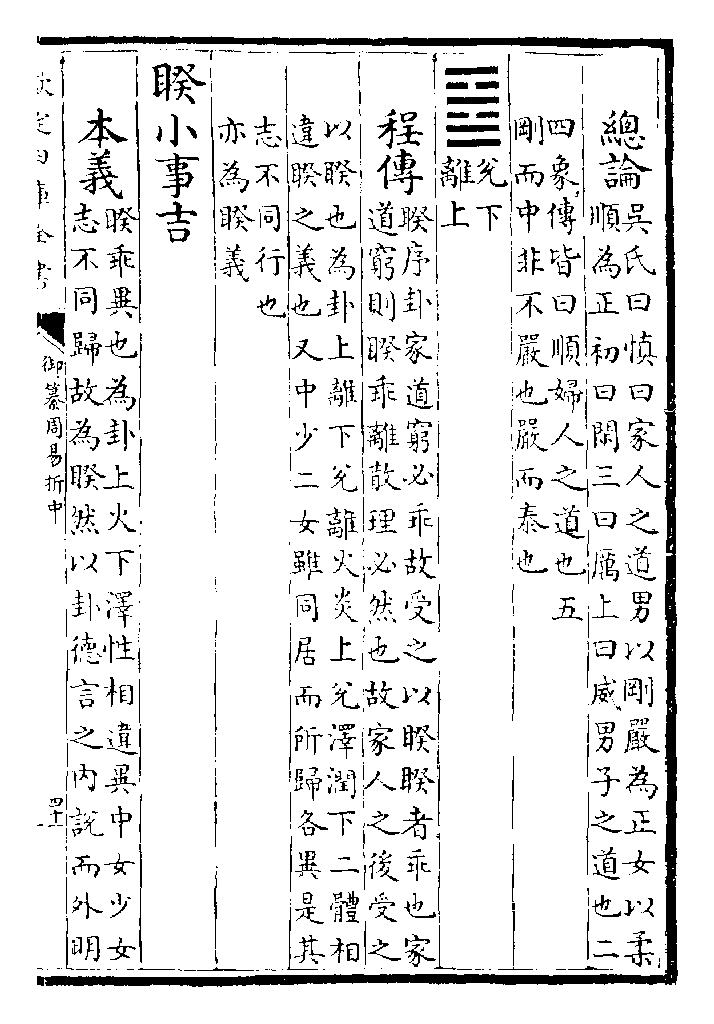 總論
吳氏曰慎曰家人之道男以剛嚴為正女以柔
順為正初曰閑三曰厲上曰威男子之道也二
四象傳皆曰順婦人之道也五
剛而中非不嚴也嚴而泰也
兌下
離上
程傳
睽序卦家道窮必乖故受之以睽睽者乖也家
道窮則睽乖離散理必然也故家人之後受之
以睽也為卦上離下兌離火炎上兌澤潤下二體相
違睽之義也又中少二女雖同居而所歸各異是其
志不同行也
亦為睽義
睽小事吉
本義
睽乖異也為卦上火下澤性相違異中女少女
志不同歸故為睽然以卦德言之內說而外明
欽定四庫全書
御纂周易折中
四十一